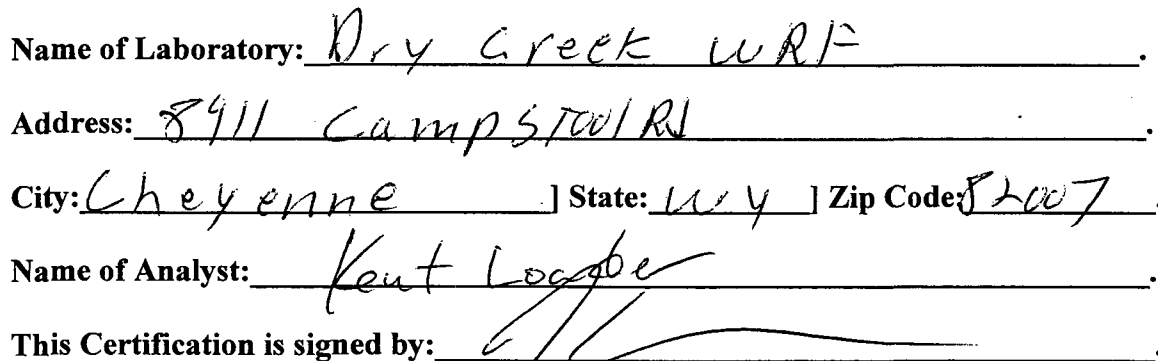 Name of Laboratory: Dry Creek WRF.
Address: 8911 Campstool Rd.
City: Cheyenne ] State: WY ] Zip Code: 82007.
Name of Analyst: Kent.
This Certification is signed by:.